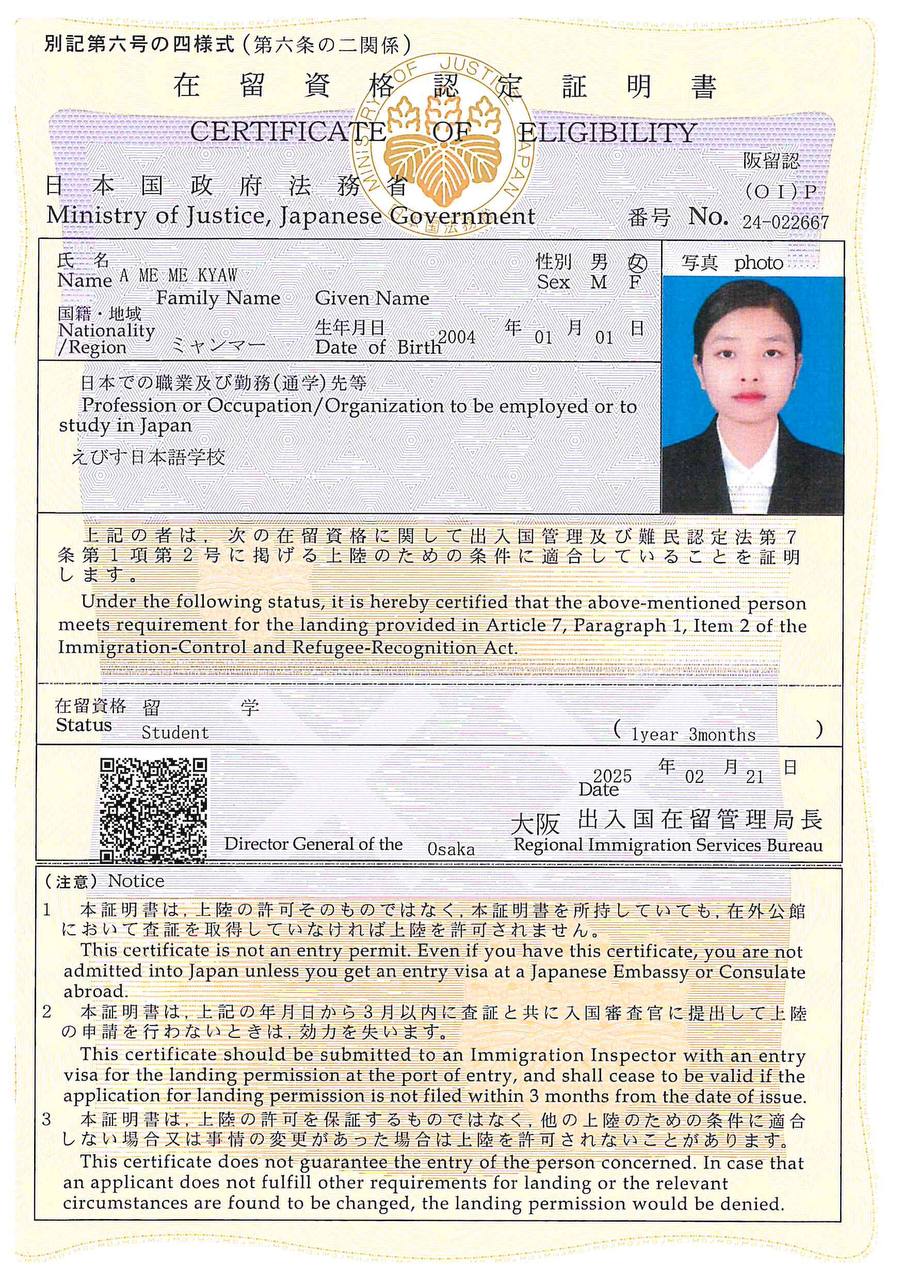 別記第六号の四様式(第六条の二関係)
在留資格認定証明書
CERTIFICATE OF ELIGIBILITY
MINISTRY OF JUSTICE, JAPAN
阪留認
日本国政府法務省
(OI)P
Ministry of Justice, Japanese Government
番号 No. 24-022667
氏 名
Name A ME ME KYAW
性別 男 女
Sex M F
写真 photo
Family Name Given Name
国籍・地域
Nationality
/Region ミャンマー
生年月日
Date of Birth 2004 年 01 月 01 日
日本での職業及び勤務(通学)先等
Profession or Occupation/Organization to be employed or to
study in Japan
えびす日本語学校
上記の者は,次の在留資格に関して出入国管理及び難民認定法第7
条第1項第2号に掲げる上陸のための条件に適合していることを証明
します。
Under the following status, it is hereby certified that the above-mentioned person
meets requirement for the landing provided in Article 7, Paragraph 1, Item 2 of the
Immigration-Control and Refugee-Recognition Act.
在留資格 留 学
Status Student
( 1year 3months )
2025 年 02 月 21 日
Date
大阪 出入国在留管理局長
Director General of the Osaka Regional Immigration Services Bureau
(注意) Notice
1 本証明書は,上陸の許可そのものではなく,本証明書を所持していても,在外公館
において査証を取得していなければ上陸を許可されません。
This certificate is not an entry permit. Even if you have this certificate, you are not
admitted into Japan unless you get an entry visa at a Japanese Embassy or Consulate
abroad.
2 本証明書は,上記の年月日から3月以内に査証と共に入国審査官に提出して上陸
の申請を行わないときは,効力を失います。
This certificate should be submitted to an Immigration Inspector with an entry
visa for the landing permission at the port of entry, and shall cease to be valid if the
application for landing permission is not filed within 3 months from the date of issue.
3 本証明書は,上陸の許可を保証するものではなく,他の上陸のための条件に適合
しない場合又は事情の変更があった場合は上陸を許可されないことがあります。
This certificate does not guarantee the entry of the person concerned. In case that
an applicant does not fulfill other requirements for landing or the relevant
circumstances are found to be changed, the landing permission would be denied.